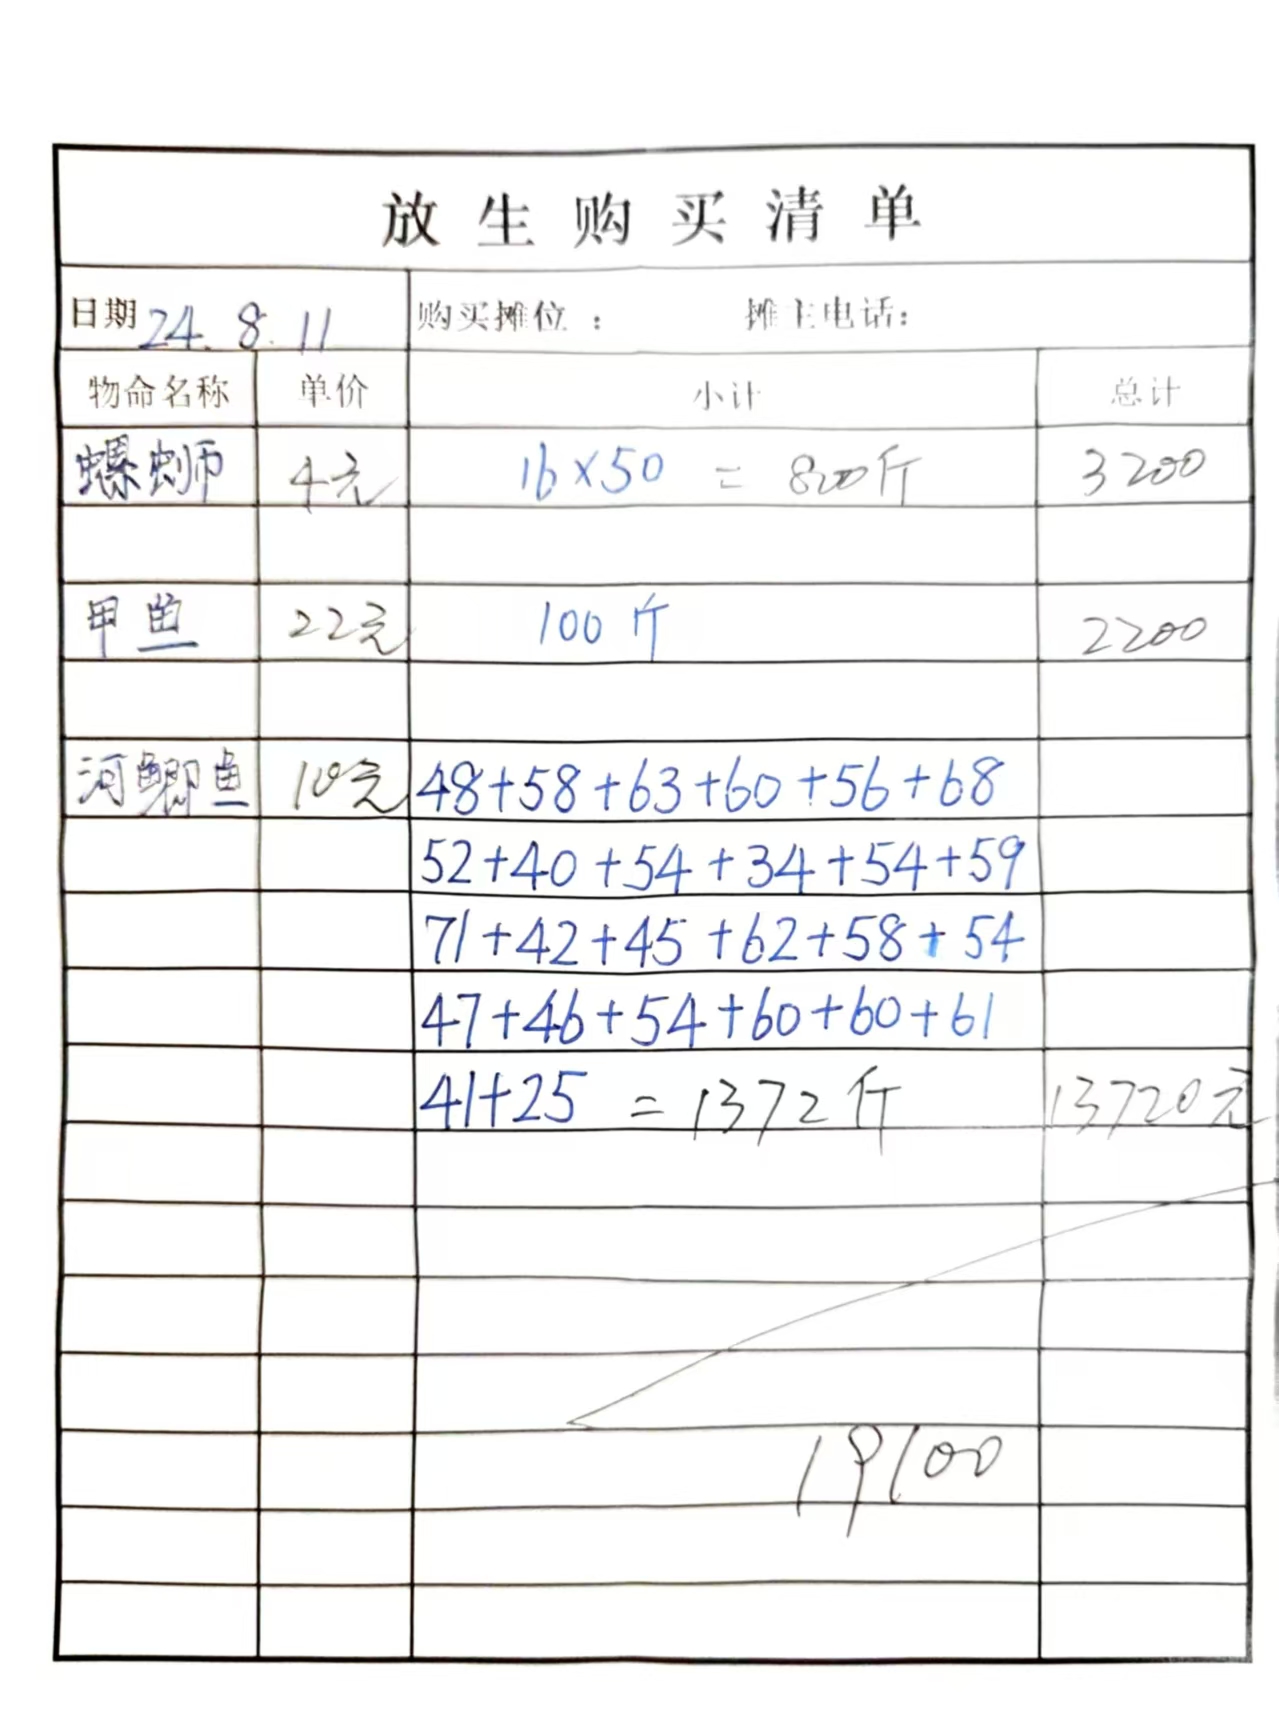 放生购买清单
日期 24.8.11 购买摊位： 摊主电话：
物命名称 单价 小计 总计
螺蛳 4元 16×50 = 800斤 3200
甲鱼 22元 100斤 2200
河鲫鱼 10元 48+58+63+60+56+68
52+40+54+34+54+59
71+42+45+62+58+54
47+46+54+60+60+61
41+25 = 1372斤 13720元
19100